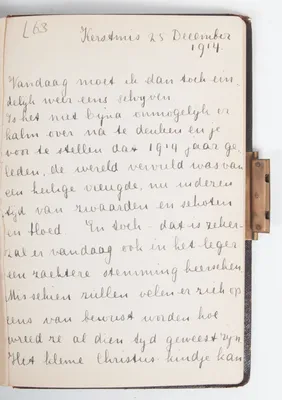 L63
Kerstmis 25 December
1914.
Vandaag moet ik dan toch ein-
delijk weer eens schrijven.
Is het niet bijna onmogelijk er
kalm over na te denken en je
voor te stellen dat 1914 jaar ge-
leden, de wereld vervuld was van
een heilige vreugde, nu in deren
tijd van zwaarden en schoten
en bloed. En toch - dat is zeker-
zal er vandaag ook in het leger
een zachtere stemming heerschen
Misschien zullen velen er zich op
eens van bewust worden hoe
wreed ze al dien tijd geweest zijn
Het kleine Christus-kindje kan